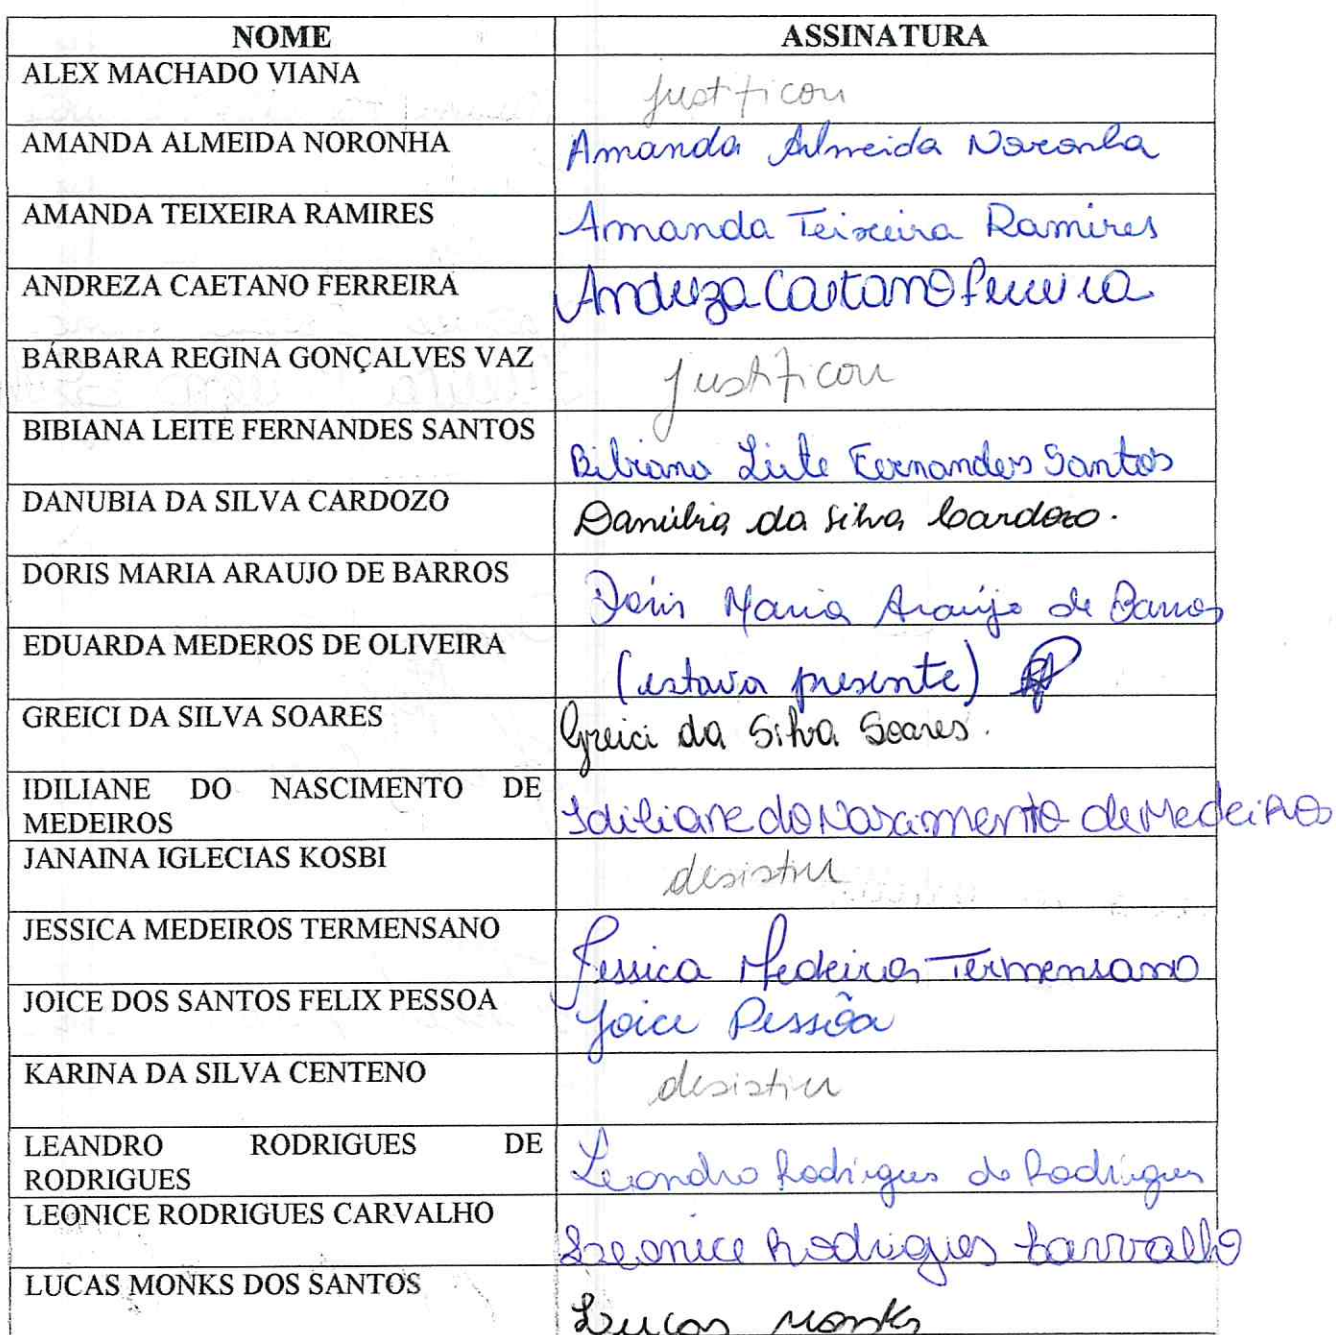 NOME ASSINATURA
ALEX MACHADO VIANA justificou
AMANDA ALMEIDA NORONHA Amanda Almeida Noronha
AMANDA TEIXEIRA RAMIRES Amanda Teixeira Ramires
ANDREZA CAETANO FERREIRA Andreza Caetano Ferreira
BÁRBARA REGINA GONÇALVES VAZ justificou
BIBIANA LEITE FERNANDES SANTOS Bibiana Leite Fernandes Santos
DANUBIA DA SILVA CARDOZO Danúbia da Silva Cardozo.
DORIS MARIA ARAUJO DE BARROS Doris Maria Araújo de Barros
EDUARDA MEDEROS DE OLIVEIRA (estava presente)
GREICI DA SILVA SOARES Greici da Silva Soares.
IDILIANE DO NASCIMENTO DE
MEDEIROS Idiliane do Nascimento de Medeiros
JANAINA IGLECIAS KOSBI desistiu
JESSICA MEDEIROS TERMENSANO Jessica Medeiros Termensano
JOICE DOS SANTOS FELIX PESSOA Joice Pessôa
KARINA DA SILVA CENTENO desistiu
LEANDRO RODRIGUES DE
RODRIGUES Leandro Rodrigues de Rodrigues
LEONICE RODRIGUES CARVALHO Leonice Rodrigues Carvalho
LUCAS MONKS DOS SANTOS Lucas Monks